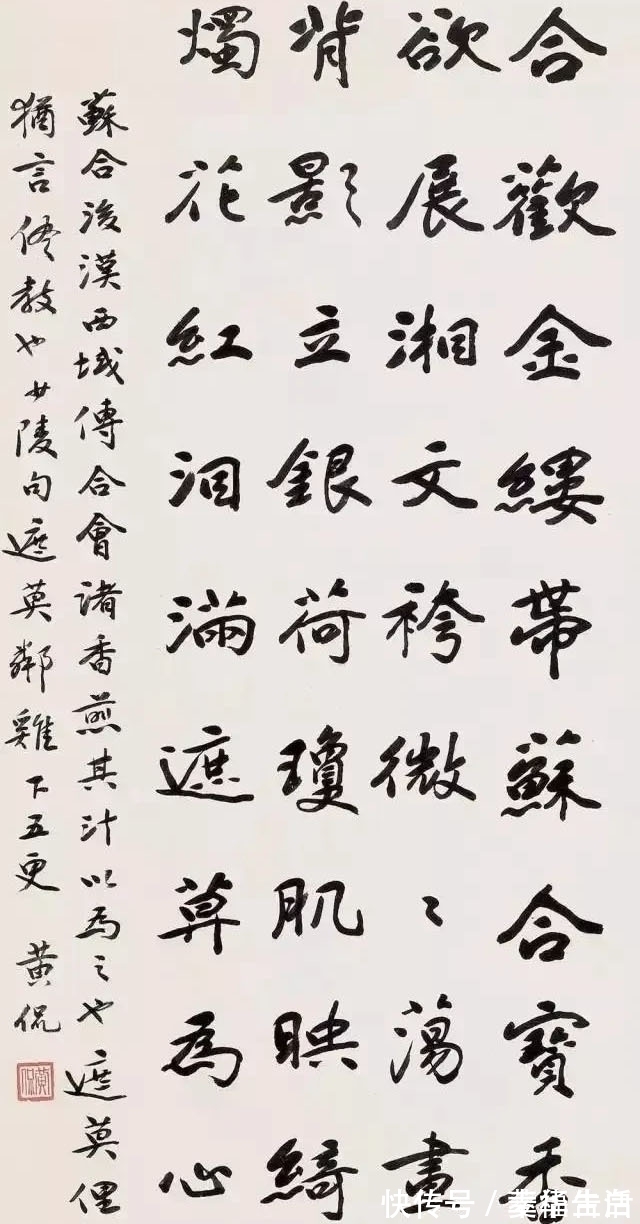 合歡金縷帶蘇合寶香
欲展湘文袴微〻蕩畫
背影立銀荷瓊肌映綺
燭花紅泪滿遮莫為心
蘇合後漢西域傳合會諸香煎其汁以為之也遮莫俚
猶言儘教也少陵句遮莫鄰雞下五更 黃侃
黃侃
快传号 /